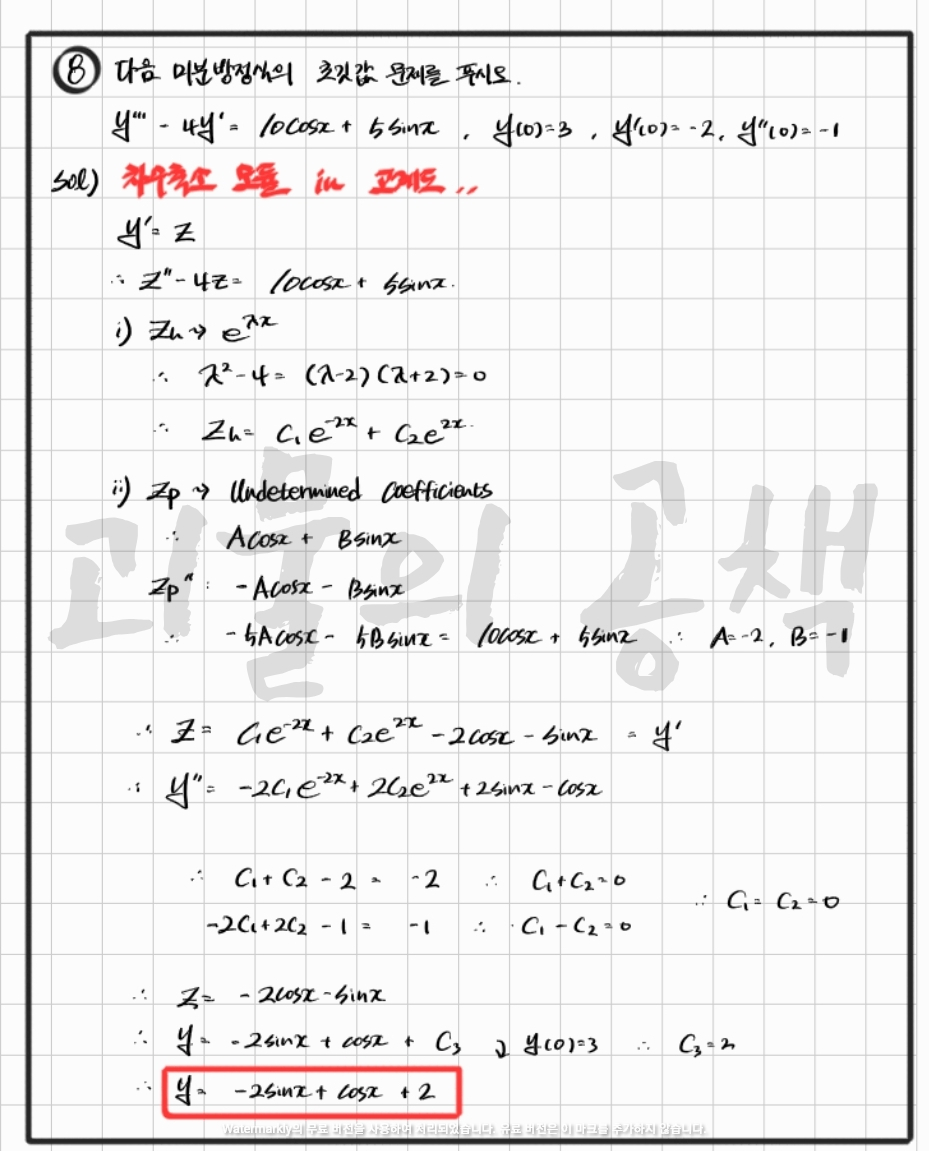 ⑧ 다음 미분방정식의 초깃값 문제를 푸시오.
y''' - 4y' = 10cosx + 5sinx , y(0)=3 , y'(0)= -2, y''(0)= -1
sol) 차수축소 모듈 in 고계도..
y' = z
∴ z'' - 4z = 10cosx + 5sinx.
i) Zh → e^λx
∴ λ² - 4 = (λ-2)(λ+2)=0
∴ Zh = C₁e^-2x + C₂e^2x.
ii) Zp → Undetermined Coefficients
∴ Acosx + Bsinx
Zp'' : -Acosx - Bsinx
∴ -5Acosx - 5Bsinx = 10cosx + 5sinx ∴ A=-2, B=-1
괴물의 공책
∴ Z = C₁e^-2x + C₂e^2x - 2cosx - sinx = y'
∴ y'' = -2C₁e^-2x + 2C₂e^2x + 2sinx - cosx
∴ C₁ + C₂ - 2 = -2 ∴ C₁+C₂=0
-2C₁+2C₂ - 1 = -1 ∴ C₁ - C₂ = 0
∴ C₁ = C₂ = 0
∴ Z = -2cosx - sinx
∴ y = -2sinx + cosx + C₃ y(0)=3 ∴ C₃=2
∴ y = -2sinx + cosx + 2
Watermarkly의 무료 버전을 사용하여 처리되었습니다. 유료 버전은 이 마크를 추가하지 않습니다.